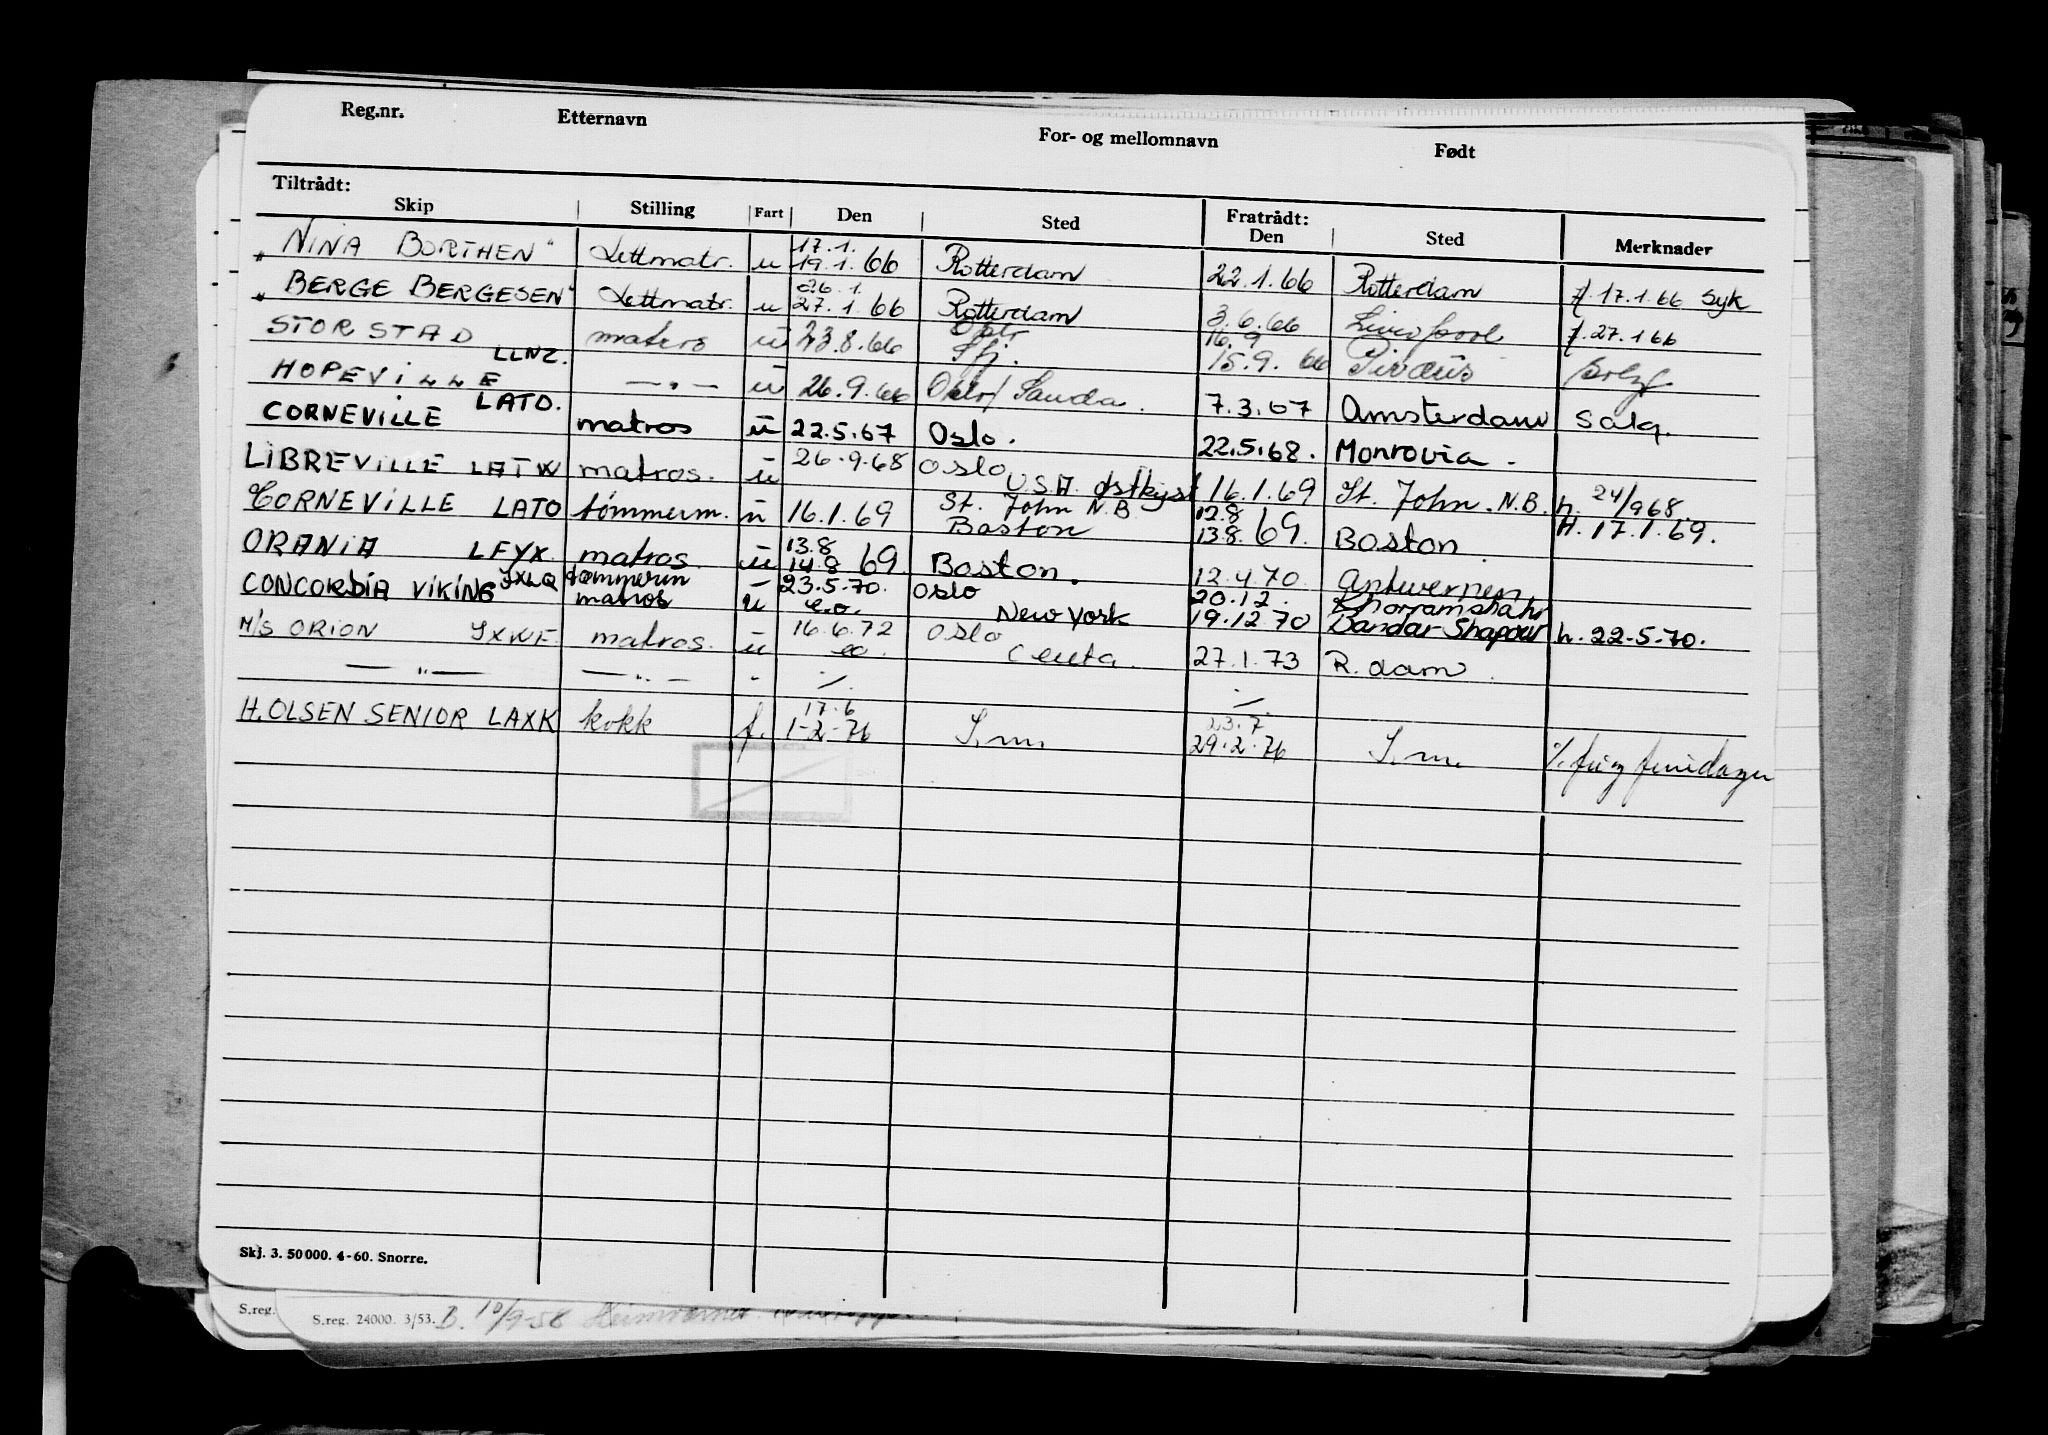 Reg.nr. Etternavn For- og mellomnavn Født
Tiltrådt: Fratrådt:
Skip Stilling Fart Den Sted Den Sted Merknader
17.1.
"NINA BORTHEN" Lettmatr. u 19.1.66 Rotterdam 22.1.66 Rotterdam f. 17.1.66 syk
26.1
"BERGE BERGESEN" Lettmatr. u 27.1.66 Rotterdam 3.6.66 Liverpool f. 27.1 66
16.9
STORSTAD LLNZ. matros u 23.8.66 Sfj. 15.9.66 Piræus
HOPEVILLE LATD. — " — u 26.9.66 Sauda. 7.3.67 Amsterdam Salg.
CORNEVILLE matros u 22.5.67 Oslo. 22.5.68. Monrovia.
LIBREVILLE LATW matros. u 26.9.68 Oslo U.S.A. østkyst 16.1.69 St. John. N.B. h. 24/968.
CORNEVILLE LATO tømmerm. u 16.1.69 St. John N.B Boston 12.8 13.8.69. Boston H. 17.1.69.
ORANIA LFYX matros. u 13.8 14.8 69 Boston. 12.4.70. Antwerpen
CONCORDIA VIKING JXLQ tømmerm matros u 23.5.70. e.o. Oslo New York 20.12. 19.12.70 Khorramshahr Bandar Shapour h. 22-5-70.
M/S ORION JXWF. matros. u 16.6.72 eo. Oslo Ceuta. 27.1.73 R.dam.
— " — — " — - ./. ./.
17.6 23.7
H. OLSEN SENIOR LAXK kokk f. 1-2-76 S.m. 29.2.76 S.m.
Skj. 3. 50000. 4-60. Snorre.
S.reg.
S.reg. 24000. 3/53. B. 10/9-58 Heimvernet.